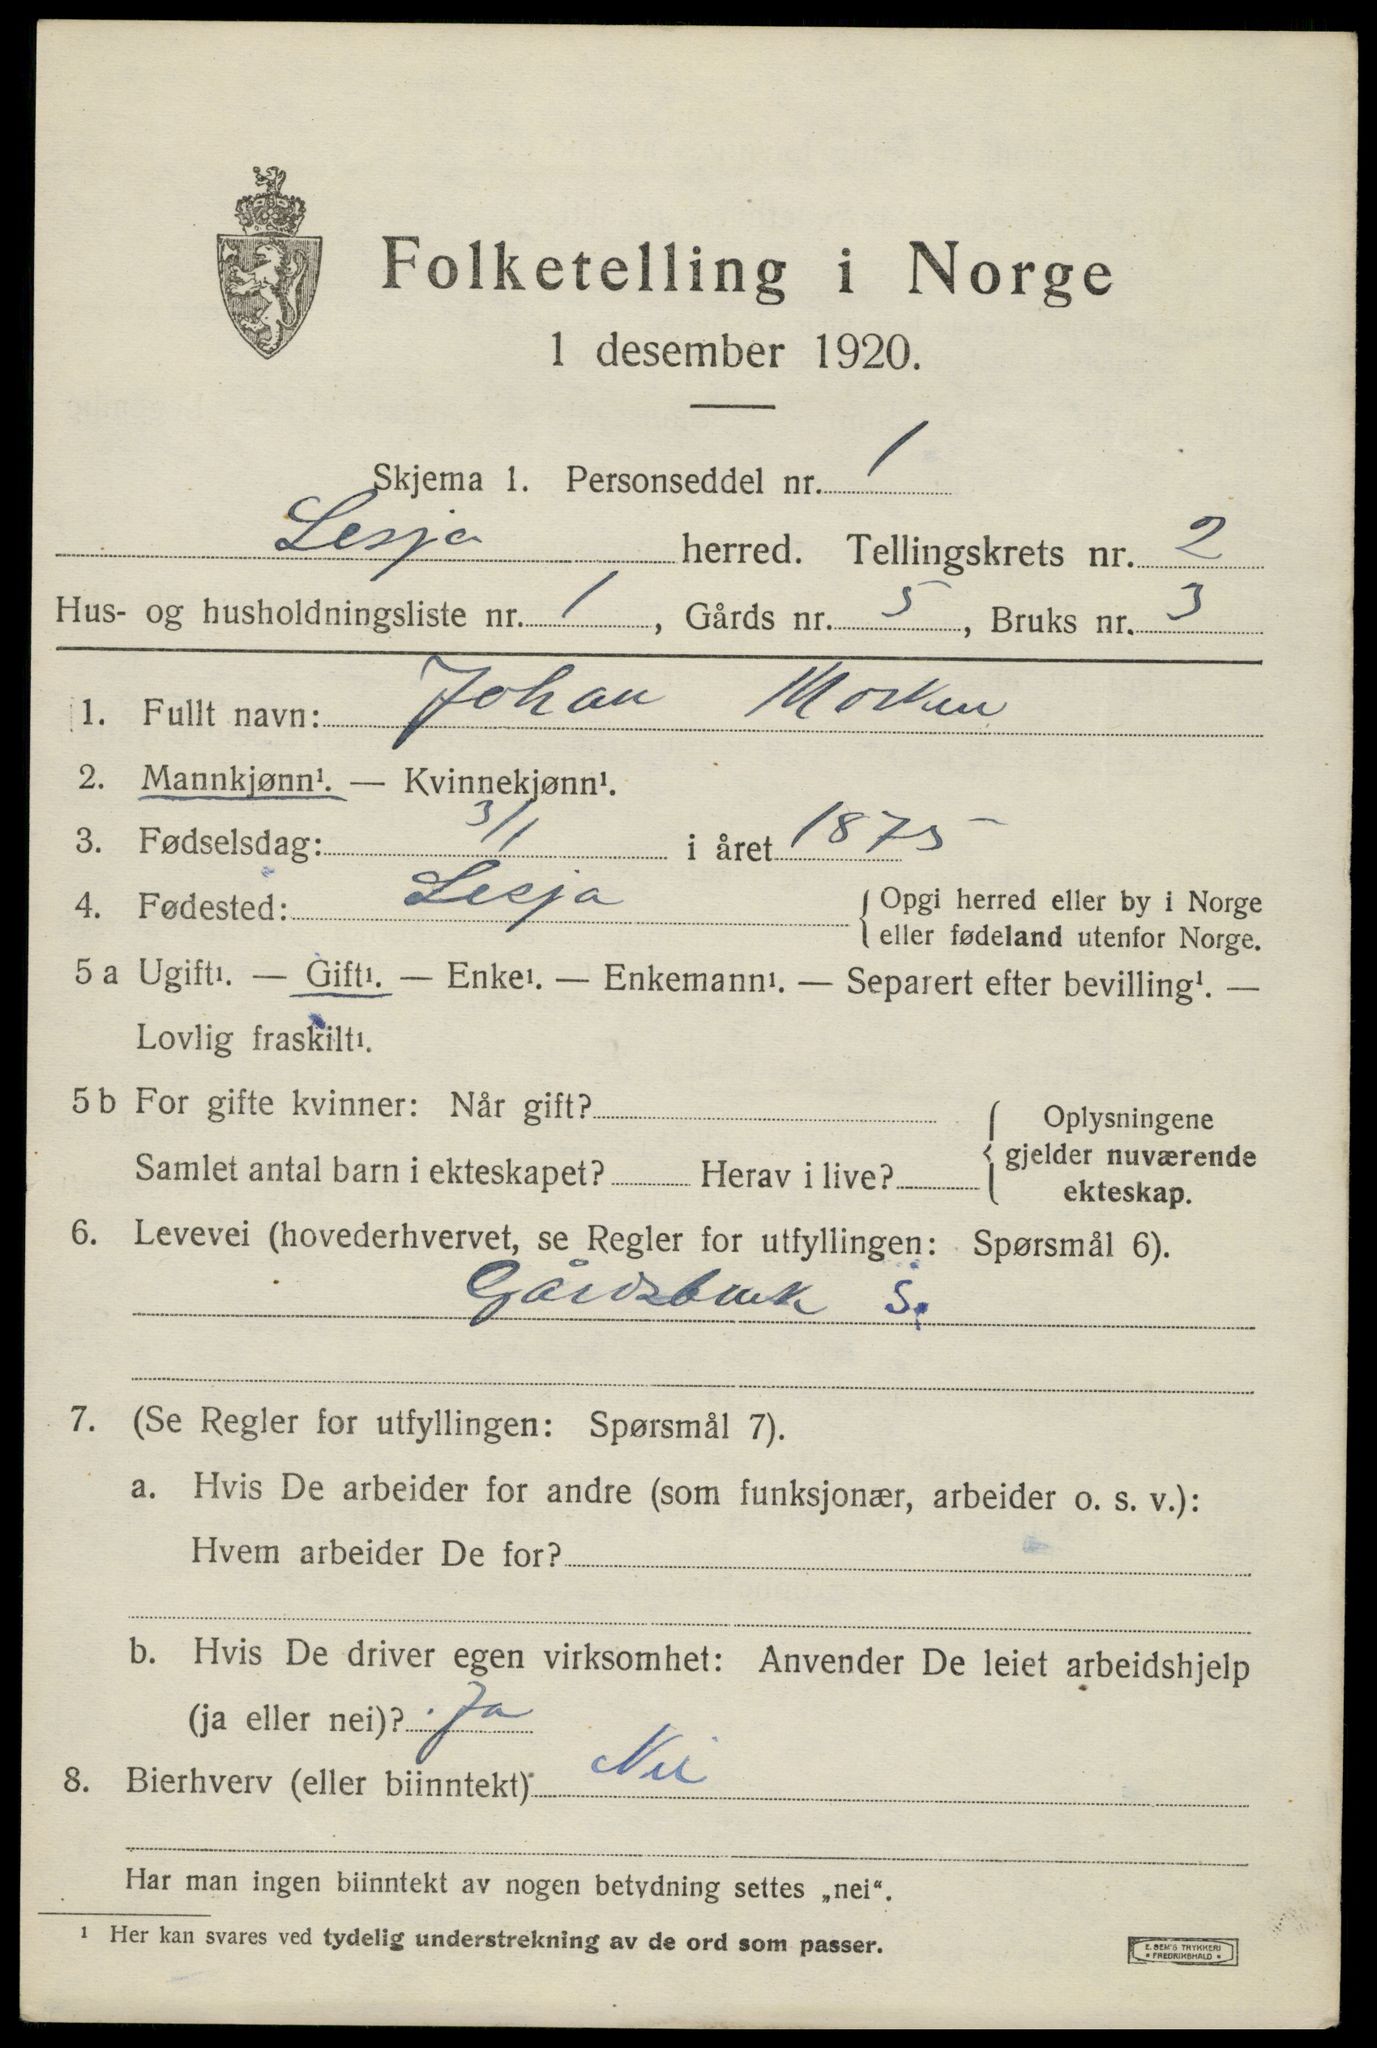 Folketelling i Norge
1 desember 1920.
Skjema 1. Personseddel nr. 1
Lesja herred. Tellingskrets nr. 2
Hus- og husholdningsliste nr. 1, Gårds nr. 5, Bruks nr. 3
1. Fullt navn: Johan Morken
2. Mannkjønn¹. — Kvinnekjønn¹.
3. Fødselsdag: 3/1 i året 1875
4. Fødested: Lesja { Opgi herred eller by i Norge
eller fødeland utenfor Norge.
5 a Ugift¹. — Gift¹. — Enke¹. — Enkemann¹. — Separert efter bevilling¹. —
Lovlig fraskilt¹.
5 b For gifte kvinner: Når gift? { Oplysningene
gjelder nuværende
Samlet antal barn i ekteskapet? Herav i live?
ekteskap.
6. Levevei (hovederhvervet, se Regler for utfyllingen: Spørsmål 6).
Gårdsbruk S.
7. (Se Regler for utfyllingen: Spørsmål 7).
a. Hvis De arbeider for andre (som funksjonær, arbeider o. s. v.):
Hvem arbeider De for?
b. Hvis De driver egen virksomhet: Anvender De leiet arbeidshjelp
(ja eller nei)? Ja
8. Bierhverv (eller biinntekt) Nei
Har man ingen biinntekt av nogen betydning settes „nei“.
¹ Her kan svares ved tydelig understrekning av de ord som passer.
E. SEM'S TRYKKERI
* FREDRIKSHALD *